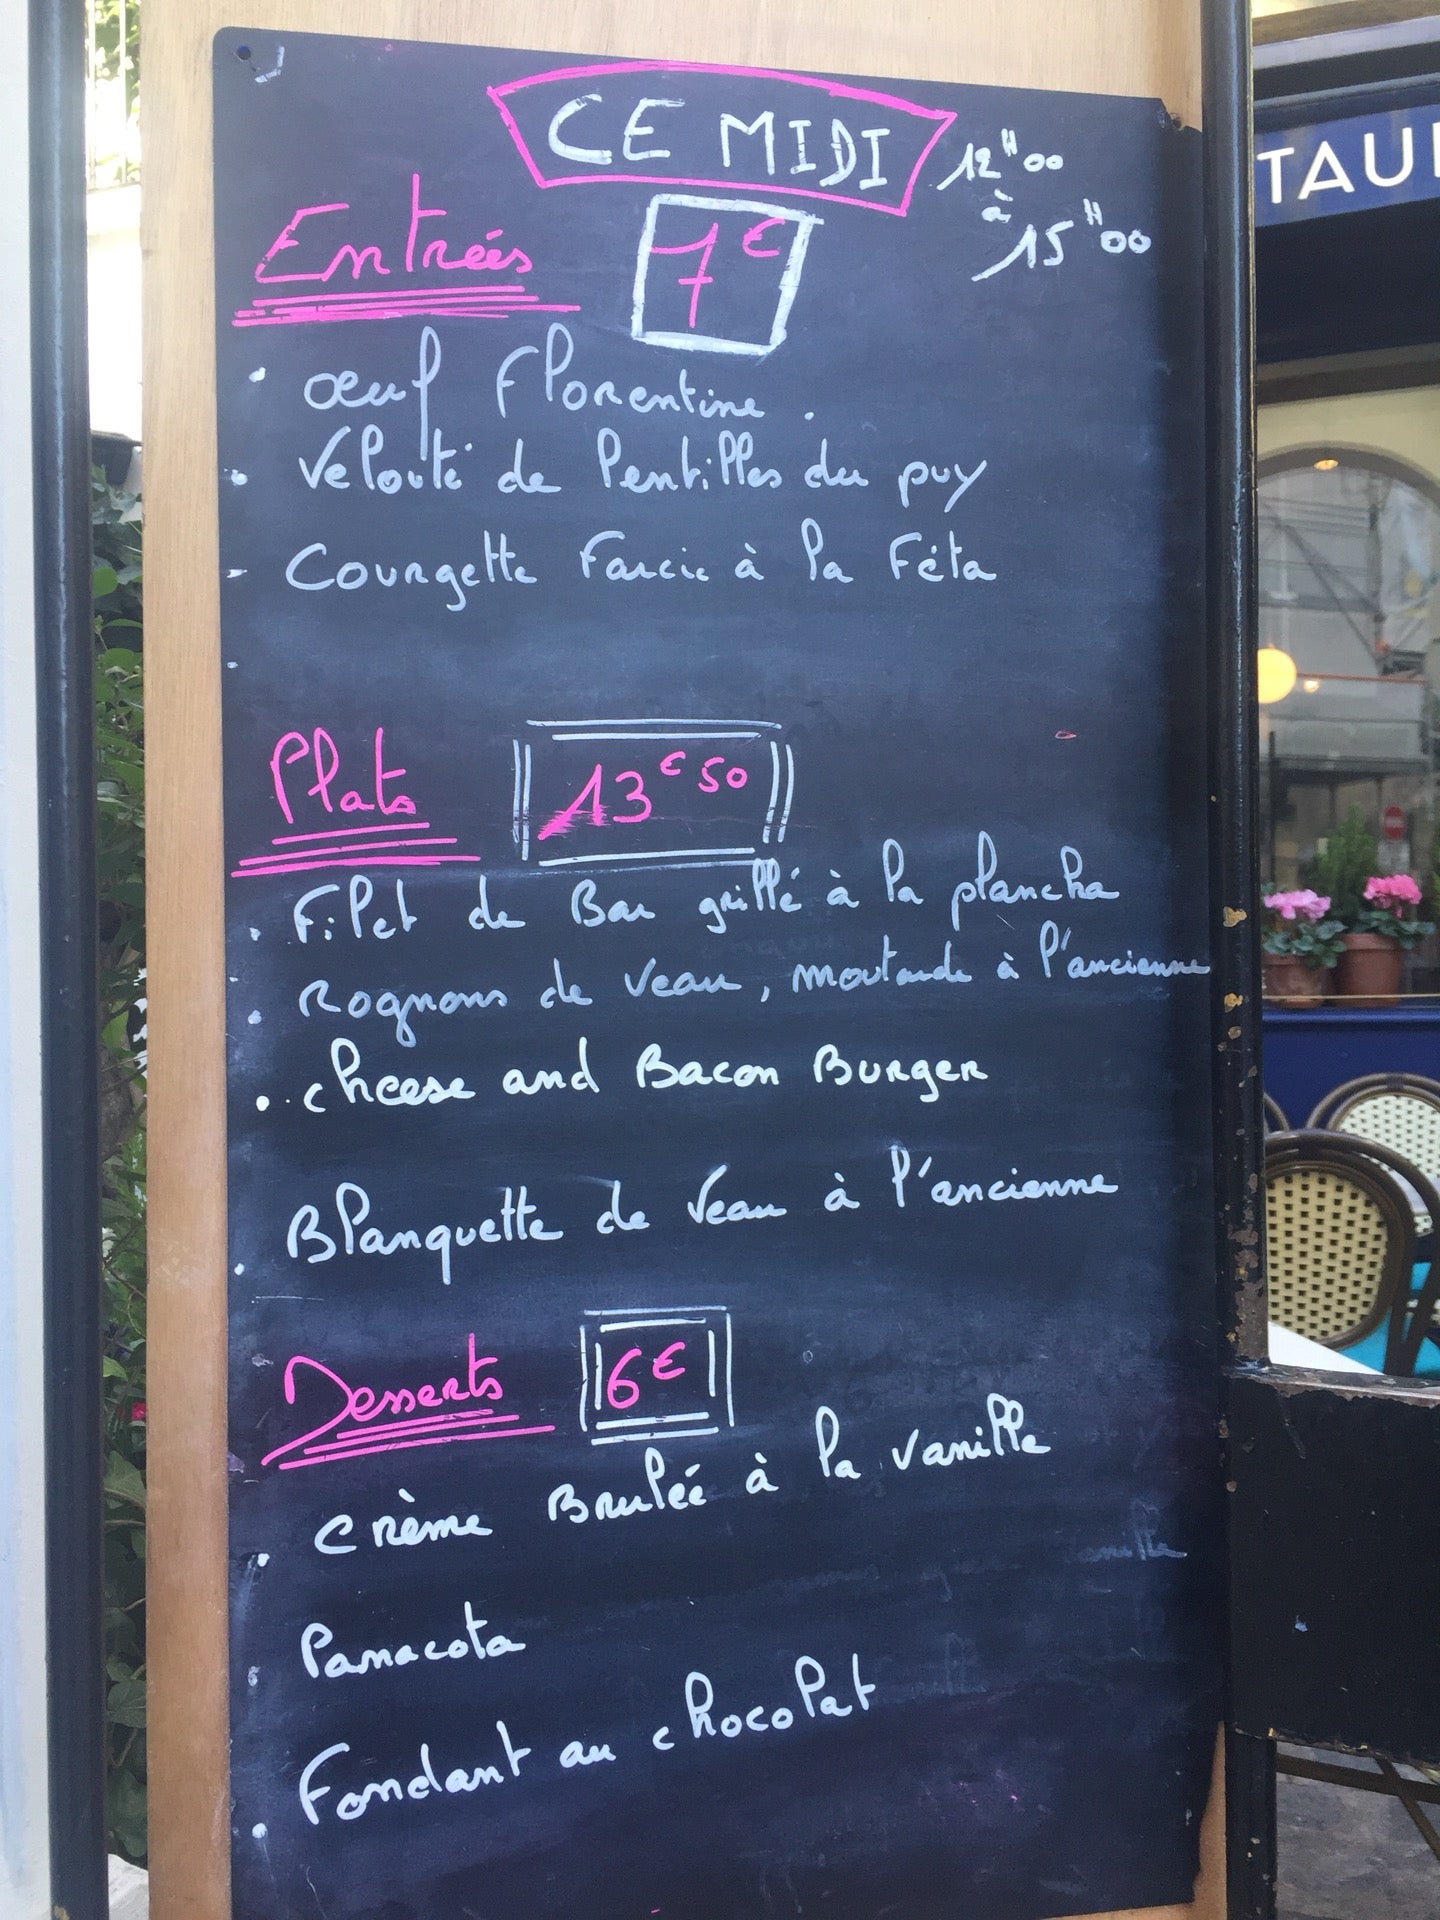 CE MIDI
12H00
à
15H00
Entrées
7€
œuf Florentine.
Velouté de lentilles du puy
Courgette Farcie à la Féta
Plats
13€50
Filet de Bar grillé à la plancha
Rognons de Veau, moutarde à l'ancienne
cheese and Bacon Burger
Blanquette de Veau à l'ancienne
Desserts
6€
crème Brulée à la vanille
Panacota
Fondant au chocolat
TAU